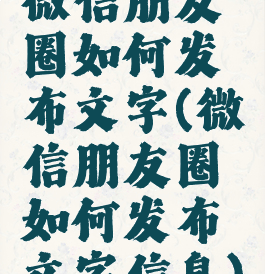 微信朋友
圈如何发
布文字(微
信朋友圈
如何发布
文字信息)